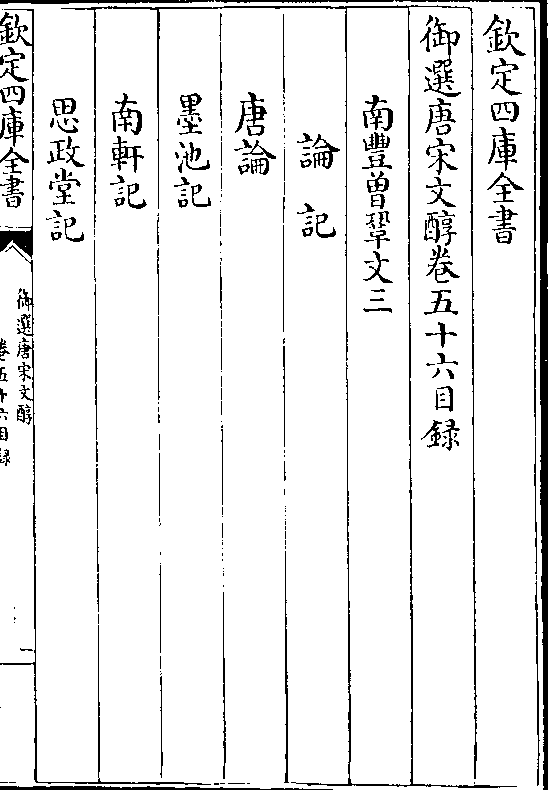 欽定四庫全書
御選唐宋文醇卷五十六目録
南豐曾鞏文三
論記
唐論
墨池記
南軒記
思政堂記
欽定四庫全書
御選唐宋文醇
卷五十六目録
一